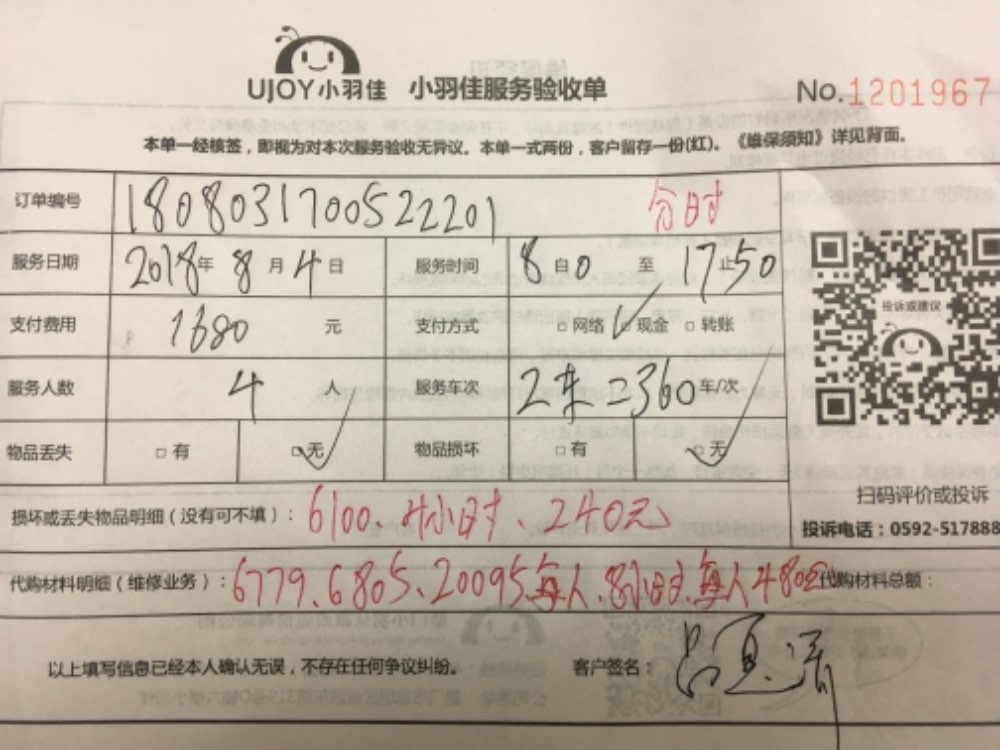 UJOY小羽佳 小羽佳服务验收单 No.1201967
本单一经核签，即视为对本次服务验收无异议。本单一式两份，客户留存一份(红)。《维保须知》详见背面。
订单编号 180803170052 2201 分时
服务日期 2018年 8 月 4 日 服务时间 8 自 0 至 17 止 50
支付费用 1680 元 支付方式 □网络 □现金 □转账
投诉或建议
服务人数 4 人 服务车次 2车=360 车/次
物品丢失 □有 □无 物品损坏 □有 □无
扫码评价或投诉
损坏或丢失物品明细（没有可不填）： 6100、4小时、240元
投诉电话：0592-517888
代购材料明细（维修业务）： 6779.6805.20095每人.8小时.每人480元 代购材料总额：
以上填写信息已经本人确认无误，不存在任何争议纠纷。 客户签名：